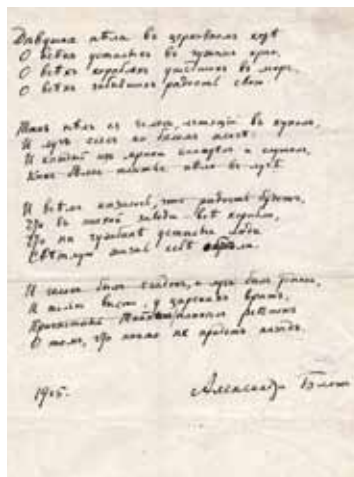 Дѣвушка пѣла въ церковномъ хорѣ
О всѣхъ усталыхъ въ чужомъ краю,
О всѣхъ корабляхъ, ушедшихъ въ море,
О всѣхъ, забывшихъ радость свою.
Такъ пѣлъ ея голосъ, летящій въ куполъ,
И лучъ сіялъ на бѣломъ плечѣ,
И каждый изъ мрака смотрѣлъ и слушалъ,
Какъ бѣлое платье пѣло въ лучѣ.
И всѣмъ казалось, что радость будетъ,
Что въ тихой заводи всѣ корабли,
Что на чужбинѣ усталые люди
Свѣтлую жизнь себѣ обрѣли.
И голосъ былъ сладокъ, и лучъ былъ тонокъ,
И только высоко, у царскихъ вратъ,
Причастный тайнамъ, плакалъ ребенокъ
О томъ, что никто не придетъ назадъ.
1905.
Александръ Блокъ